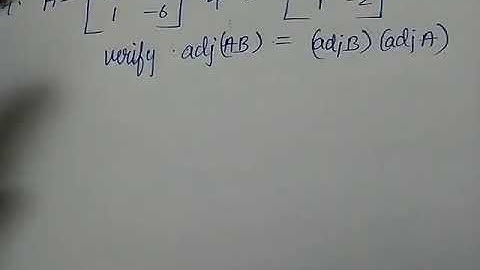 A=
1 -6 1 -2
verify adj(AB) = (adjB)(adjA)